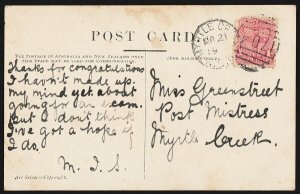 POST CARD
THE POSTAGE IN AUSTRALIA AND NEW ZEALAND ONLY
THIS SPACE MAY BE USED FOR COMMUNICATION.
Thanks for congratulations
I havn't made up
my mind yet about
going for an exam.
but I don't think
I've got a hope if
I do.
M. I. S.
Art Series — Copyright.
MYRTLE
21
Miss Greenstreet
Post Mistress
Myrtle
Creek.